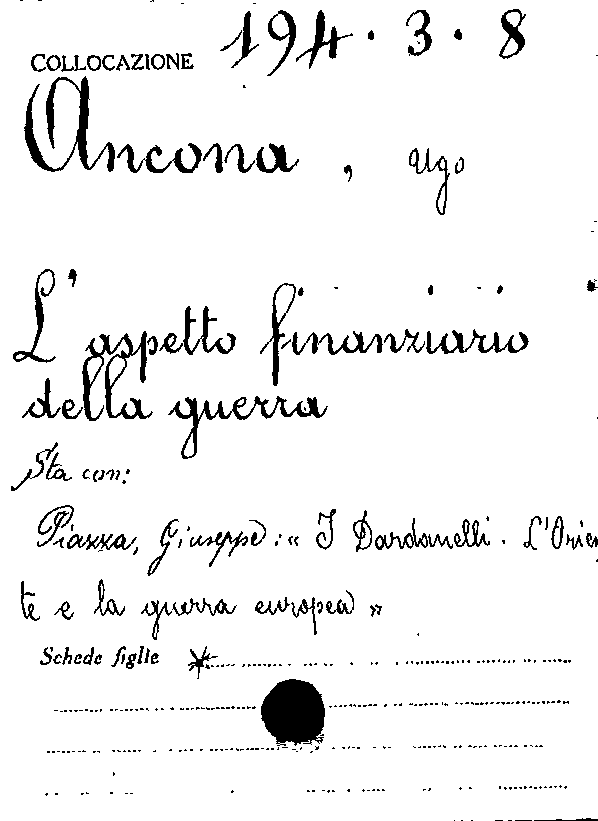 COLLOCAZIONE 194.3.8
Ancona, Ugo
L'aspetto finanziario
della guerra
Sta con:
Piazza, Giuseppe: « I Dardanelli. L'Orien
te e la guerra europea »
Schede figlie *